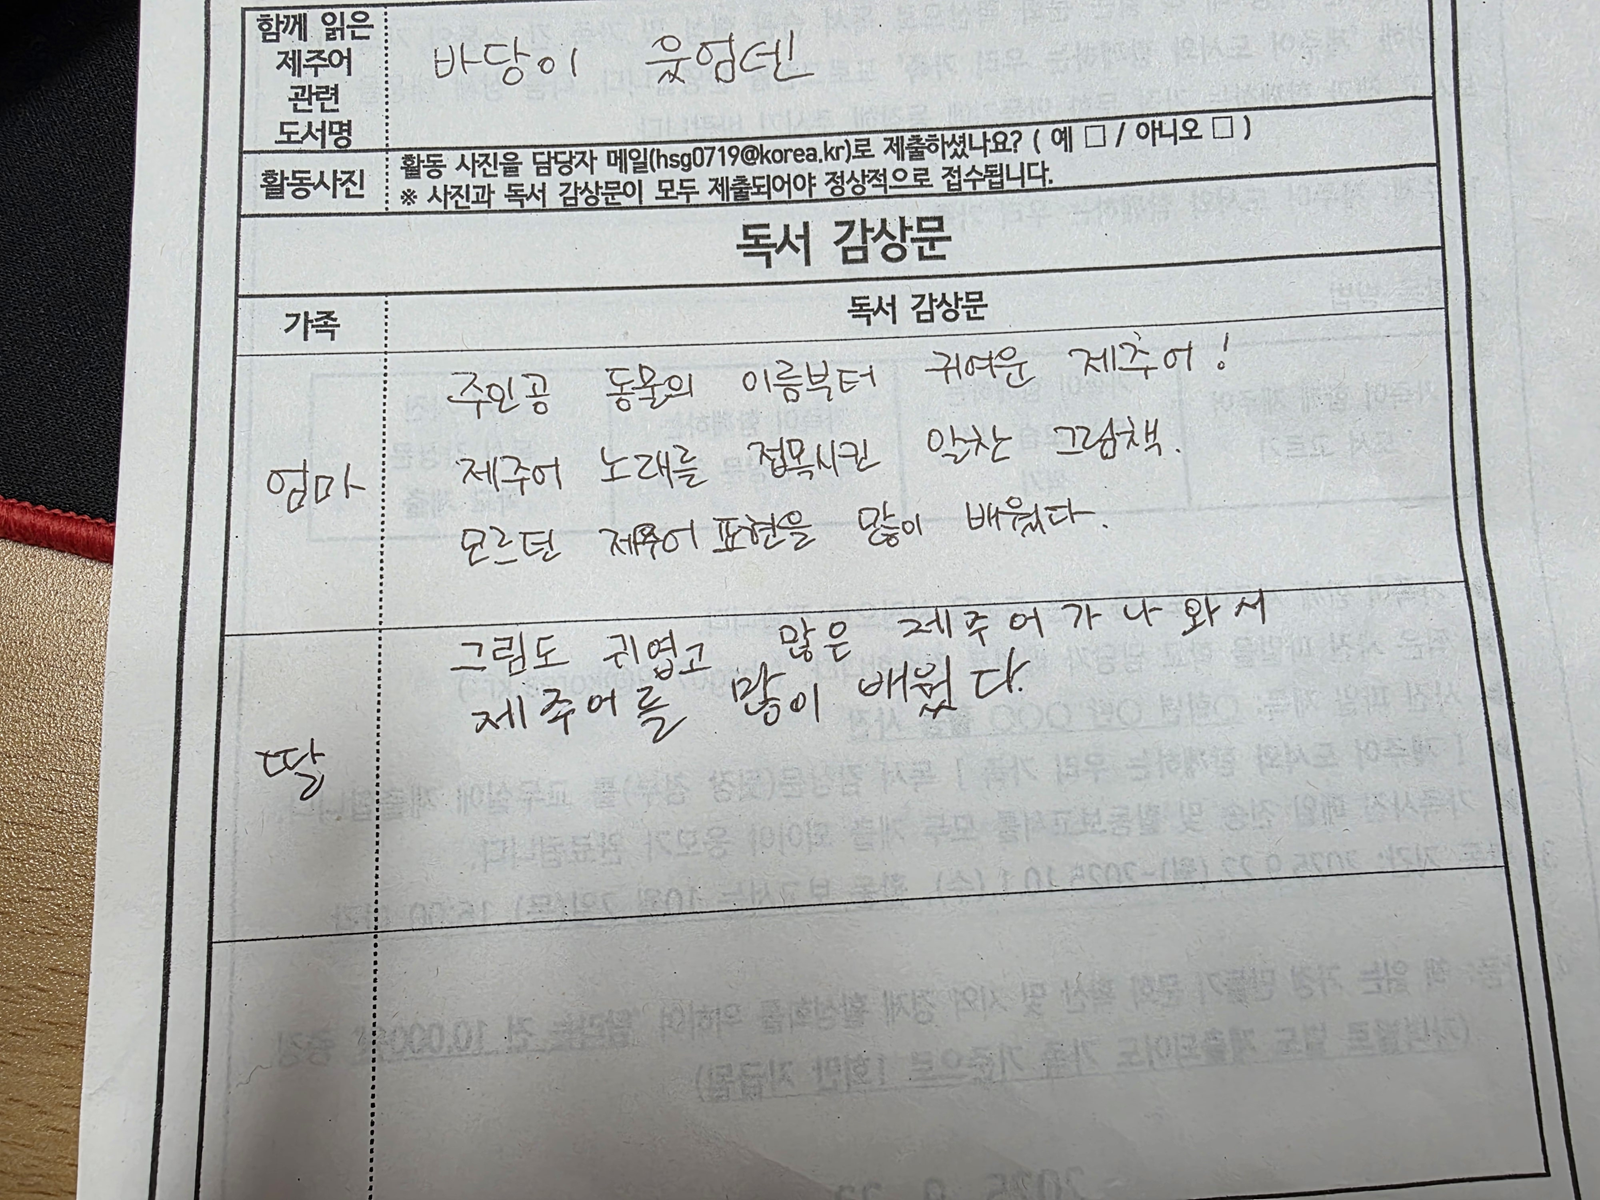 함께 읽은
제주어
관련
도서명
바당이 웃엄덴
활동사진
활동 사진을 담당자 메일(hsg0719@korea.kr)로 제출하셨나요? ( 예 □ / 아니오 □ )
※ 사진과 독서 감상문이 모두 제출되어야 정상적으로 접수됩니다.
독서 감상문
가족
독서 감상문
엄마
주인공 동물의 이름부터 귀여운 제주어!
제주어 노래를 접목시킨 알찬 그림책.
모르던 제주어 표현을 많이 배웠다.
딸
그림도 귀엽고 많은 제주어가 나와서
제주어를 많이 배웠다.